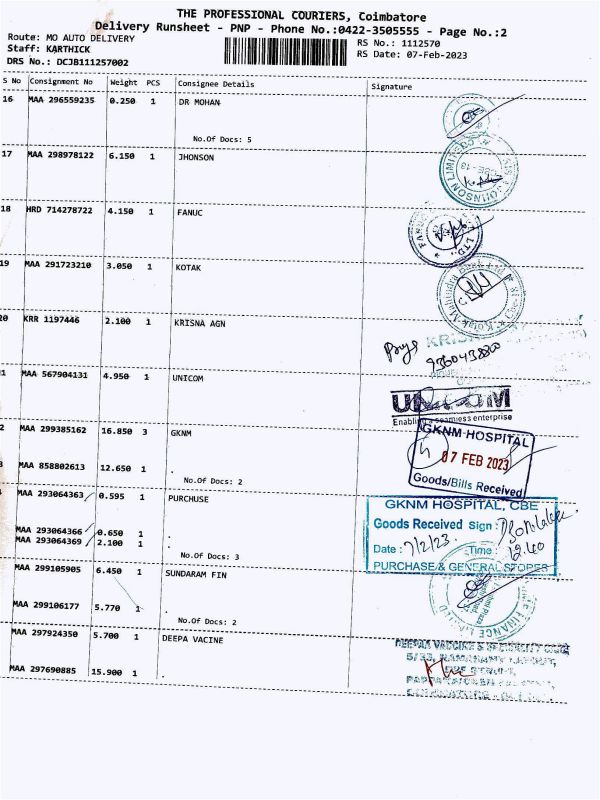 THE PROFESSIONAL COURIERS, Coimbatore
Delivery Runsheet - PNP - Phone No.:0422-3505555 - Page No.:2
Route: MO AUTO DELIVERY
Staff: KARTHICK
DRS No.: DCJB111257002
RS No.: 1112570
RS Date: 07-Feb-2023
S No Consignment No Weight PCS Consignee Details Signature
16 MAA 296559235 0.250 1 DR MOHAN
No.Of Docs: 5
17 MAA 298978122 6.150 1 JHONSON
18 HRD 714278722 4.150 1 FANUC
19 MAA 291723210 3.050 1 KOTAK
20 KRR 1197446 2.100 1 KRISNA AGN
9360438800
1 MAA 567904131 4.950 1 UNICOM
Enabling a seamless enterprise
2 MAA 299385162 16.850 3 GKNM
GKNM HOSPITAL
07 FEB 2023
Goods/Bills Received
3 MAA 858802613 12.650 1 .
No.Of Docs: 2
4 MAA 293064363 0.595 1 PURCHUSE
GKNM HOSPITAL, CBE
Goods Received Sign :
Date : 7/2/23 Time : 12.40
PURCHASE & GENERAL STORES
MAA 293064366 0.650 1 .
MAA 293064369 2.100 1 .
No.Of Docs: 3
MAA 299105905 6.450 1 SUNDARAM FIN
MAA 299106177 5.770 1 .
No.Of Docs: 2
MAA 297924350 5.700 1 DEEPA VACINE
MAA 297690885 15.900 1 .